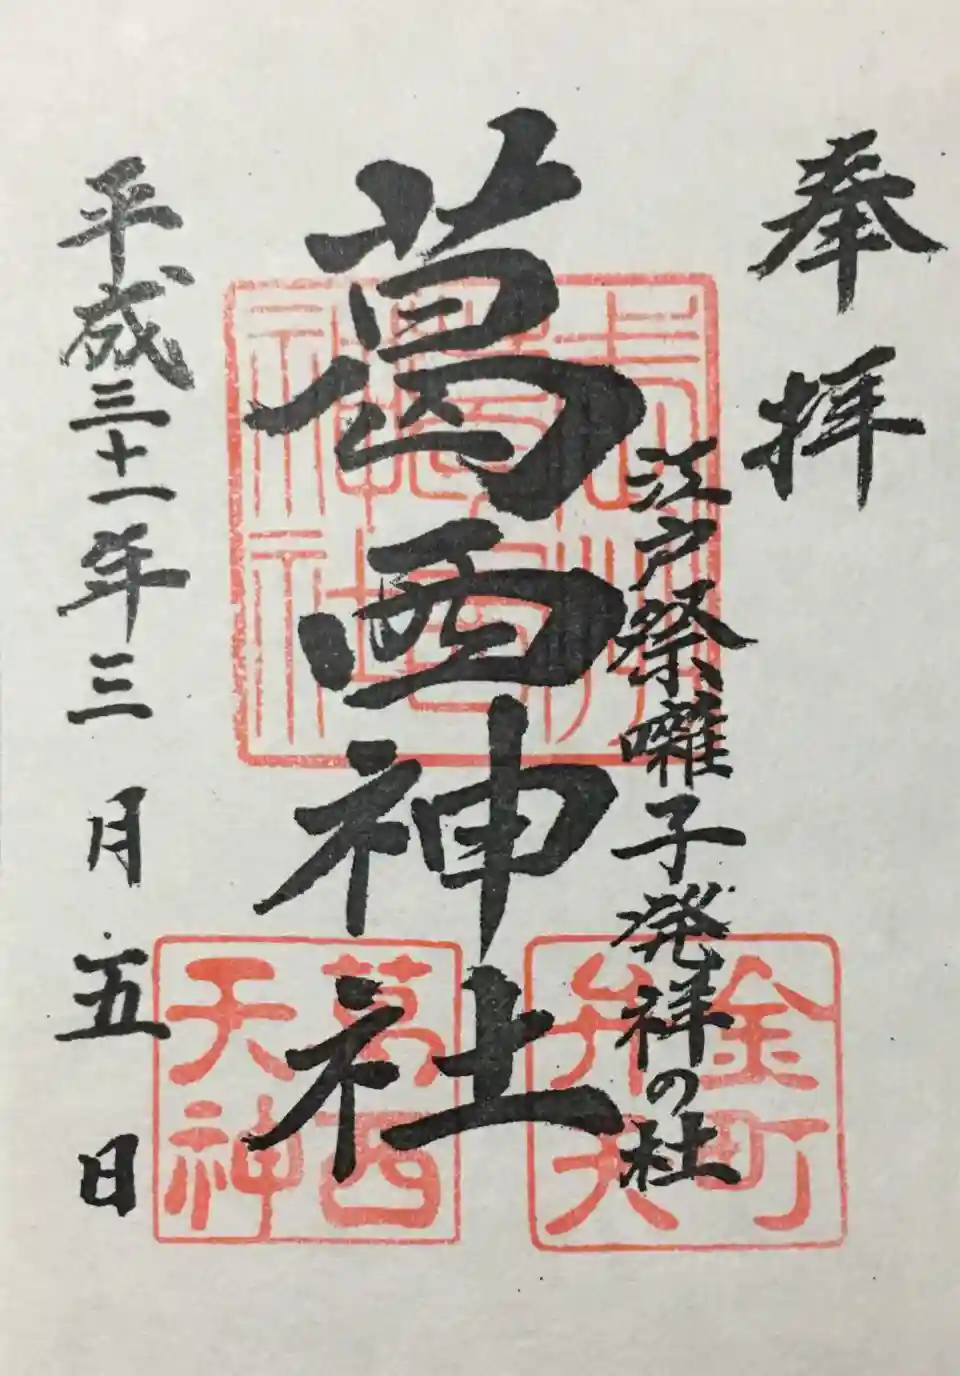 奉拝
江戸祭囃子発祥の杜
葛西神社
平成三十一年三月五日
金町
弁天
葛西
天神